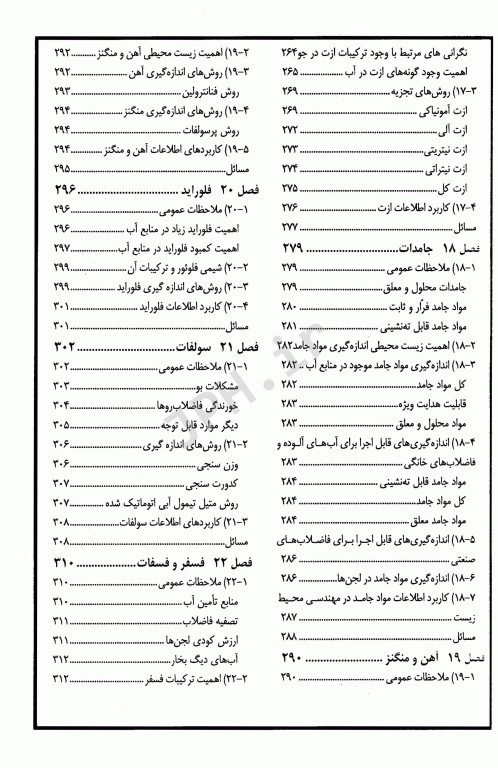 نگرانی های مرتبط با وجود ترکیبات ازت در جو۲۶۴
اهمیت وجود گونه‌های ازت در آب ................... ۲۶۵
۱۷-۳) روش‌های تجزیه ................... ۲۶۹
ازت آمونیاکی ................... ۲۶۹
ازت آلی ................... ۲۷۲
ازت نیتریتی ................... ۲۷۳
ازت نیتراتی ................... ۲۷۴
ازت کل ................... ۲۷۵
۱۷-۴) کاربرد اطلاعات ازت ................... ۲۷۶
مسائل ................... ۲۷۷
فصل ۱۸ جامدات ................... ۲۷۹
۱۸-۱) ملاحظات عمومی ................... ۲۷۹
جامدات محلول و معلق ................... ۲۷۹
مواد جامد فرّار و ثابت ................... ۲۸۰
مواد جامد قابل ته‌نشینی ................... ۲۸۱
۱۸-۲) اهمیت زیست محیطی اندازه‌گیری مواد جامد۲۸۲
۱۸-۳) اندازه‌گیری مواد جامد موجود در منابع آب .. ۲۸۲
کل مواد جامد ................... ۲۸۲
قابلیت هدایت ویژه ................... ۲۸۳
مواد محلول و معلق ................... ۲۸۳
۱۸-۴) اندازه‌گیری‌های قابل اجرا برای آب‌های آلوده و
فاضلاب‌های خانگی ................... ۲۸۳
مواد جامد قابل ته‌نشینی ................... ۲۸۴
کل مواد جامد ................... ۲۸۴
مواد جامد معلق ................... ۲۸۴
۱۸-۵) اندازه‌گیری‌های قابل اجرا برای فاضلاب‌های
صنعتی ................... ۲۸۶
۱۸-۶) اندازه‌گیری مواد جامد در لجن‌ها ................... ۲۸۶
۱۸-۷) کاربرد اطلاعات مواد جامد در مهندسی محیط
زیست ................... ۲۸۷
مسائل ................... ۲۸۸
فصل ۱۹ آهن و منگنز ................... ۲۹۰
۱۹-۱) ملاحظات عمومی ................... ۲۹۰
۱۹-۲) اهمیت زیست محیطی آهن و منگنز .......... ۲۹۲
۱۹-۳) روش‌های اندازه‌گیری آهن ................... ۲۹۲
روش فنانترولین ................... ۲۹۳
۱۹-۴) روش‌های اندازه‌گیری منگنز ................... ۲۹۴
روش پرسولفات ................... ۲۹۴
۱۹-۵) کاربردهای اطلاعات آهن و منگنز ............. ۲۹۴
مسائل ................... ۲۹۵
فصل ۲۰ فلوراید ................... ۲۹۶
۲۰-۱) ملاحظات عمومی ................... ۲۹۶
اهمیت فلوراید زیاد در منابع آب ................... ۲۹۶
اهمیت کمبود فلوراید در منابع آب ................... ۲۹۷
۲۰-۲) شیمی فلوئور و ترکیبات آن ................... ۲۹۹
۲۰-۳) روش‌های اندازه گیری فلوراید ................... ۲۹۹
۲۰-۴) کاربرد اطلاعات فلوراید ................... ۳۰۱
مسائل ................... ۳۰۱
فصل ۲۱ سولفات ................... ۳۰۲
۲۱-۱) ملاحظات عمومی ................... ۳۰۲
مشکلات بو ................... ۳۰۳
خورندگی فاضلاب‌روها ................... ۳۰۴
دیگر موارد قابل توجه ................... ۳۰۵
۲۱-۲) روش‌های اندازه گیری ................... ۳۰۶
وزن سنجی ................... ۳۰۶
کدورت سنجی ................... ۳۰۷
روش متیل تیمول آبی اتوماتیک شده .............. ۳۰۷
۲۱-۳) کاربردهای اطلاعات سولفات ................... ۳۰۸
مسائل ................... ۳۰۸
فصل ۲۲ فسفر و فسفات ................... ۳۱۰
۲۲-۱) ملاحظات عمومی ................... ۳۱۰
منابع تأمین آب ................... ۳۱۰
تصفیه فاضلاب ................... ۳۱۱
ارزش کودی لجن‌ها ................... ۳۱۱
آب‌های دیگ بخار ................... ۳۱۲
۲۲-۲) اهمیت ترکیبات فسفر ................... ۳۱۲
JPH.ir